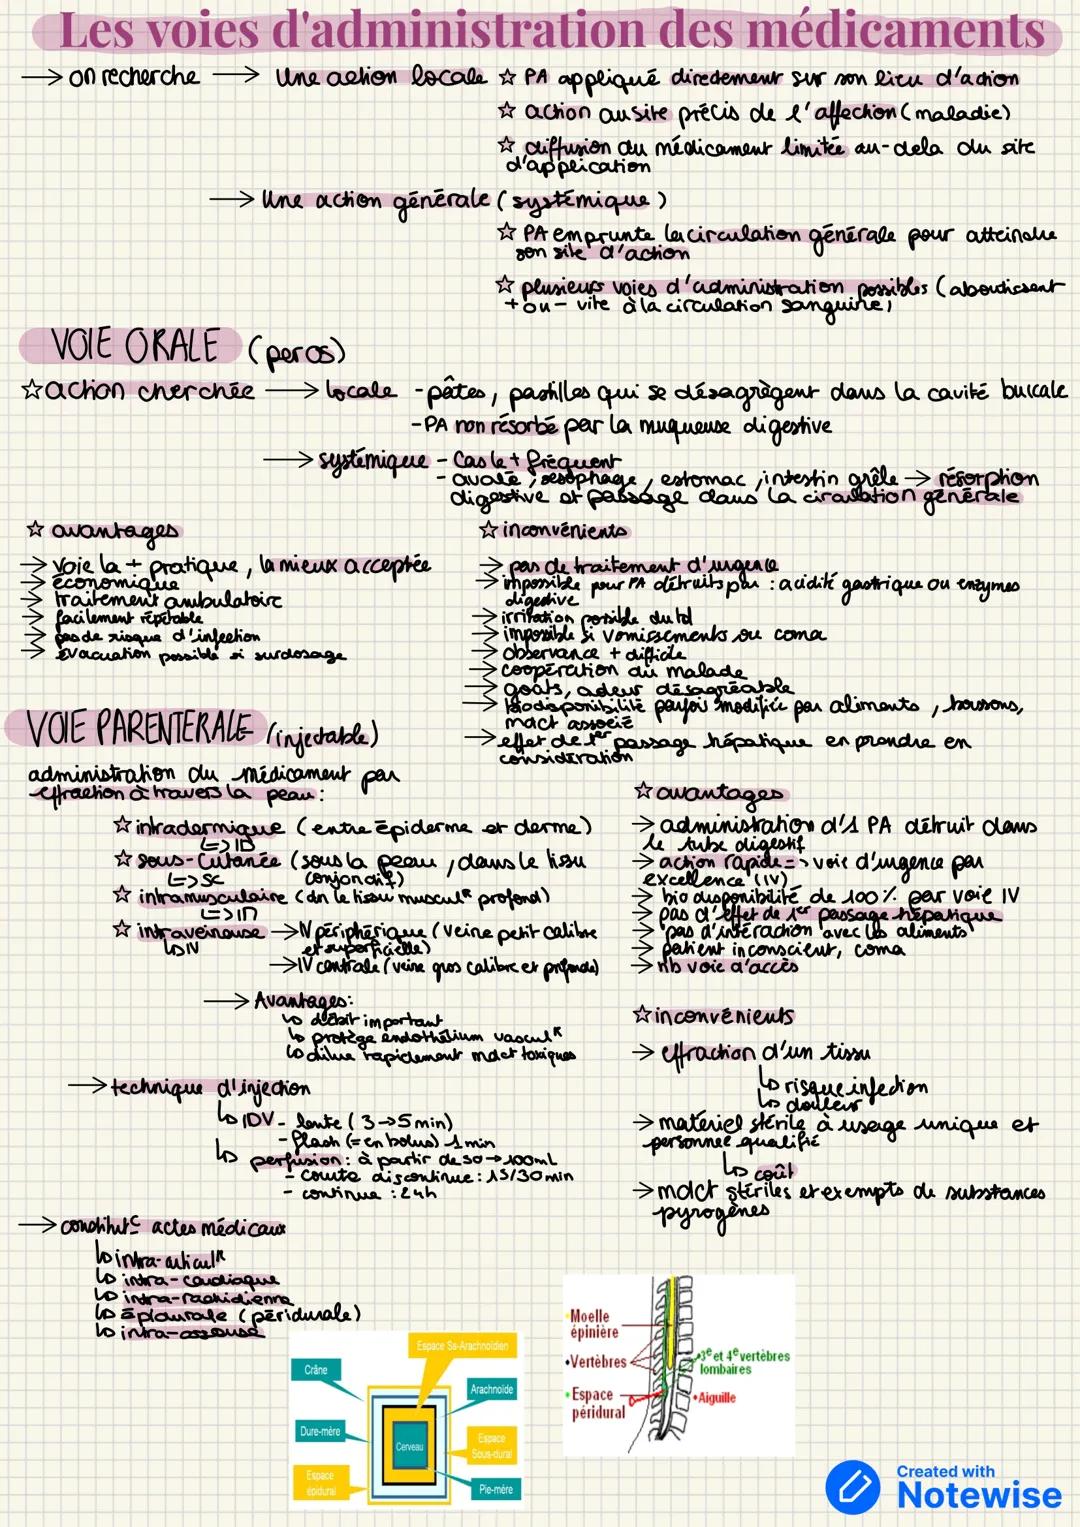 Les voies d'administration des médicaments
→ on recherche → Une action locale ☆ PA appliqué directement sur son lieu d'action
☆ action au site précis de l'affection (maladie)
☆ diffusion du médicament limitée au-dela du site
d'application
→ Une action générale (systémique)
☆ PA emprunte la circulation générale pour atteindre
son site d'action
☆ plusieurs voies d'administration possibles (aboutissent
+ ou - vite à la circulation sanguine)
VOIE ORALE (per os)
☆ action cherchée → locale - pâtes, pastilles qui se désagrègent dans la cavité buccale
- PA non résorbé par la muqueuse digestive
→ systémique - Cas le + fréquent
- avale, œsophage, estomac, intestin grêle → résorption
digestive et passage dans la circulation générale
☆ avantages
→ voie la + pratique, la mieux acceptée
→ économique
→ traitement ambulatoire
→ facilement répétable
→ pas de risque d'infection
→ évacuation possible si surdosage
☆ inconvénients
→ pas de traitement d'urgence
→ impossible pour PA détruits par : acidité gastrique ou enzymes
digestive
→ irritation possible du td
→ impossible si vomissements ou coma
→ observance + difficile
→ coopération du malade
→ goûts, odeur désagréable
→ biodisponibilité parfois modifiée par aliments, boissons,
mdct associé
→ effet de 1er passage hépatique en prendre en
considération
VOIE PARENTERALE (injectable)
administration du médicament par
effraction à travers la peau :
☆ intradermique (entre épiderme et derme)
↳ ID
☆ sous-cutanée (sous la peau, dans le tissu
↳ SC conjonctif)
☆ intramusculaire (dn le tissu musculR profond)
↳ IM
☆ intraveineuse → IV périphérique (veine petit calibre
↳ IV et superficielle)
→ IV centrale (veine gros calibre et profonde)
→ Avantages:
↳ débit important
↳ protège endothélium vasculR
↳ dilue rapidement mdct toxiques
→ technique d'injection
↳ IDV - lente (3→5min)
- flash (= en bolus) 1 min
↳ perfusion : à partir de 50→100ml
- courte discontinue : 15/30 min
- continue : 24h
→ constitut° actes médicaux
↳ intra-articulR
↳ intra-cardiaque
↳ intra-rachidienne
↳ épidurale (péridurale)
↳ intra-osseuse
☆ avantages
→ administration d'1 PA détruit dans
le tube digestif
→ action rapide => voie d'urgence par
excellence (IV)
→ bio disponibilité de 100% par voie IV
→ pas d'effet de 1er passage hépatique
→ pas d'intéraction avec les aliments
→ patient inconscient, coma
→ nb voie d'accès
☆ inconvénients
→ effraction d'un tissu
↳ risque infection
↳ douleur
→ matériel stérile à usage unique et
personnel qualifié
↳ coût
→ mdct stériles et exempts de substances
pyrogènes
Espace Ss-Arachnoïdien
Crâne
Arachnoïde
Dure-mère
Cerveau
Espace
Sous-dural
Espace
épidural
Pie-mère
Moelle
épinière
Vertèbres
3e et 4e vertèbres
lombaires
Espace
péridural
Aiguille
Created with
Notewise